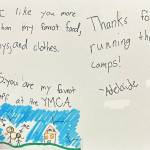 I like you more
than my favorit food,
toys, and clothes.
you are my favorit
at the YMCA
Thanks fo
running th
camps!